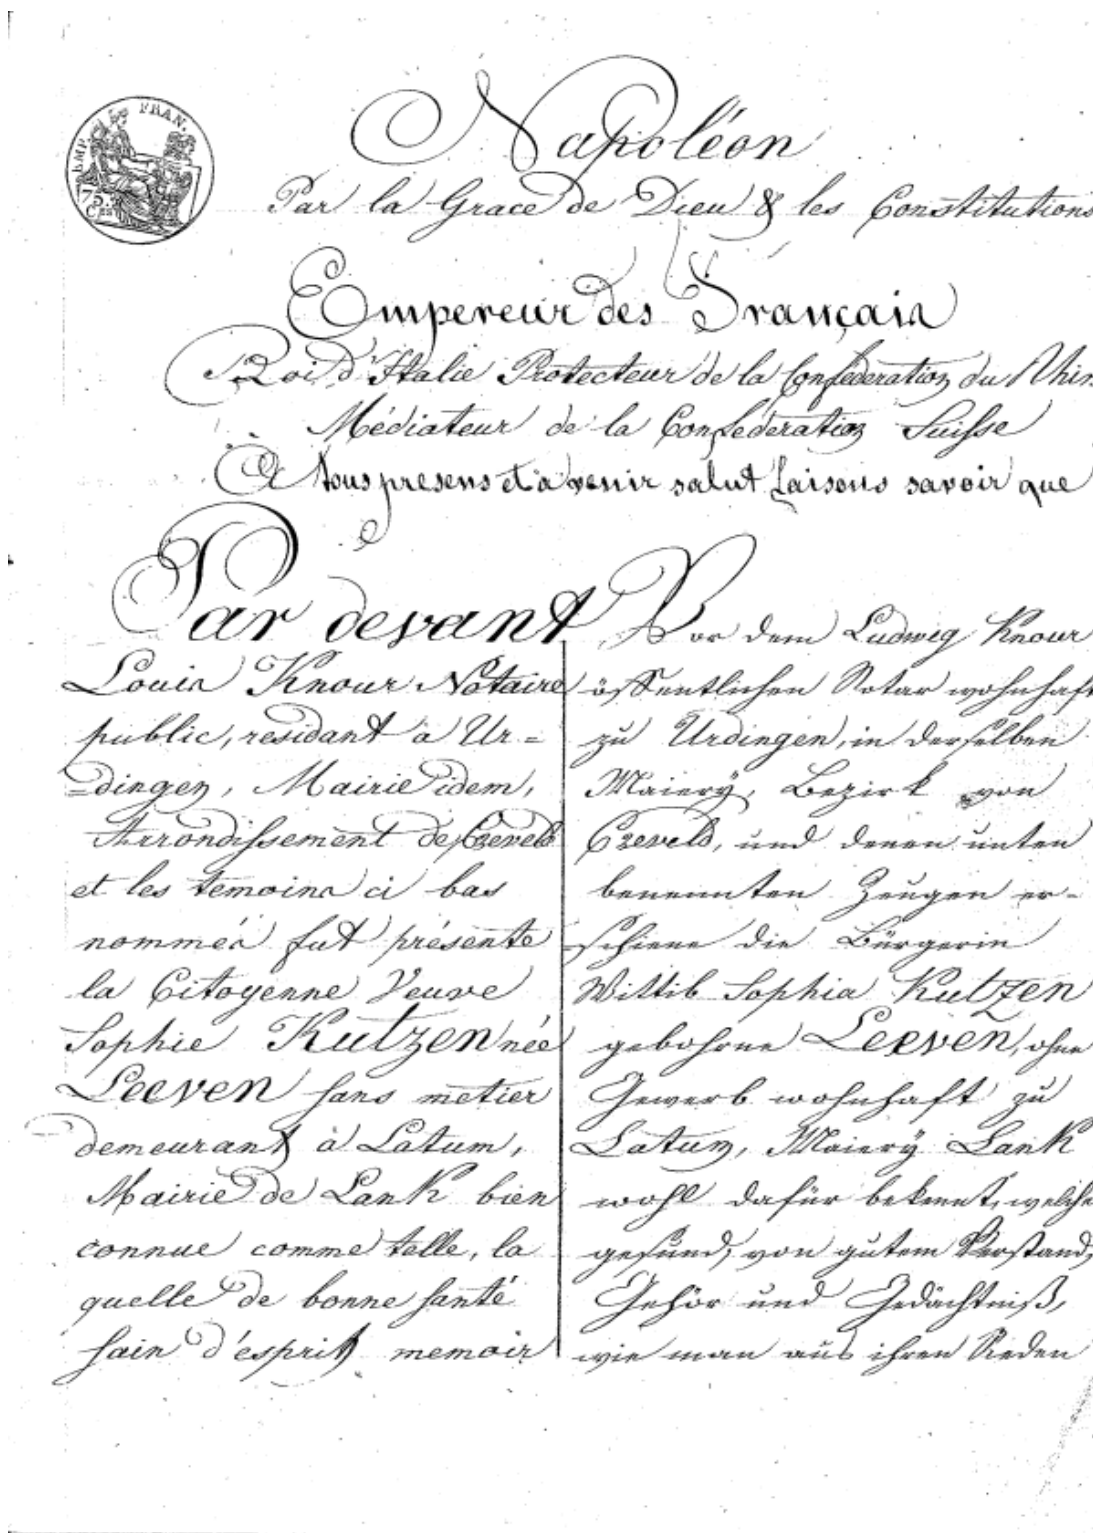 EMP. FRAN.
75.
Ces
Napoléon
Par la Grace de Dieu & les Constitutions
Empereur des Français
Roi d'Italie Protecteur de la Confederation du Rhin
Médiateur de la Confédération Suisse
A tous presens et a venir salut faisons savoir que
Par devant
Louis Knour Notaire
public, residant à Ur=
=dingen, Mairie idem,
Arrondissement de Creveld
et les temoins ci bas
nommés fut présente
la Citoyenne Veuve
Sophie Kutzen née
Leeven sans metier
demeurant à Latum,
Mairie de Lank bien
connue comme telle, la
quelle de bonne santé
sain d'esprit memoir
Vor dem Ludwig Knour
öffentlichen Notar wohnhaft
zu Urdingen, in derselben
Maiery, Bezirk von
Creveld, und denen unten
benennten Zeugen er-
schiene die Bürgerin
Wittib Sophia Kutzen
gebohrne Leeven, ohne
Gewerb wohnhaft zu
Latum, Maiery Lank
wohl dafür bekennt, welche
gesund, von gutem Verstand,
Gehör und Gedächtniß,
wie man aus ihren Reden